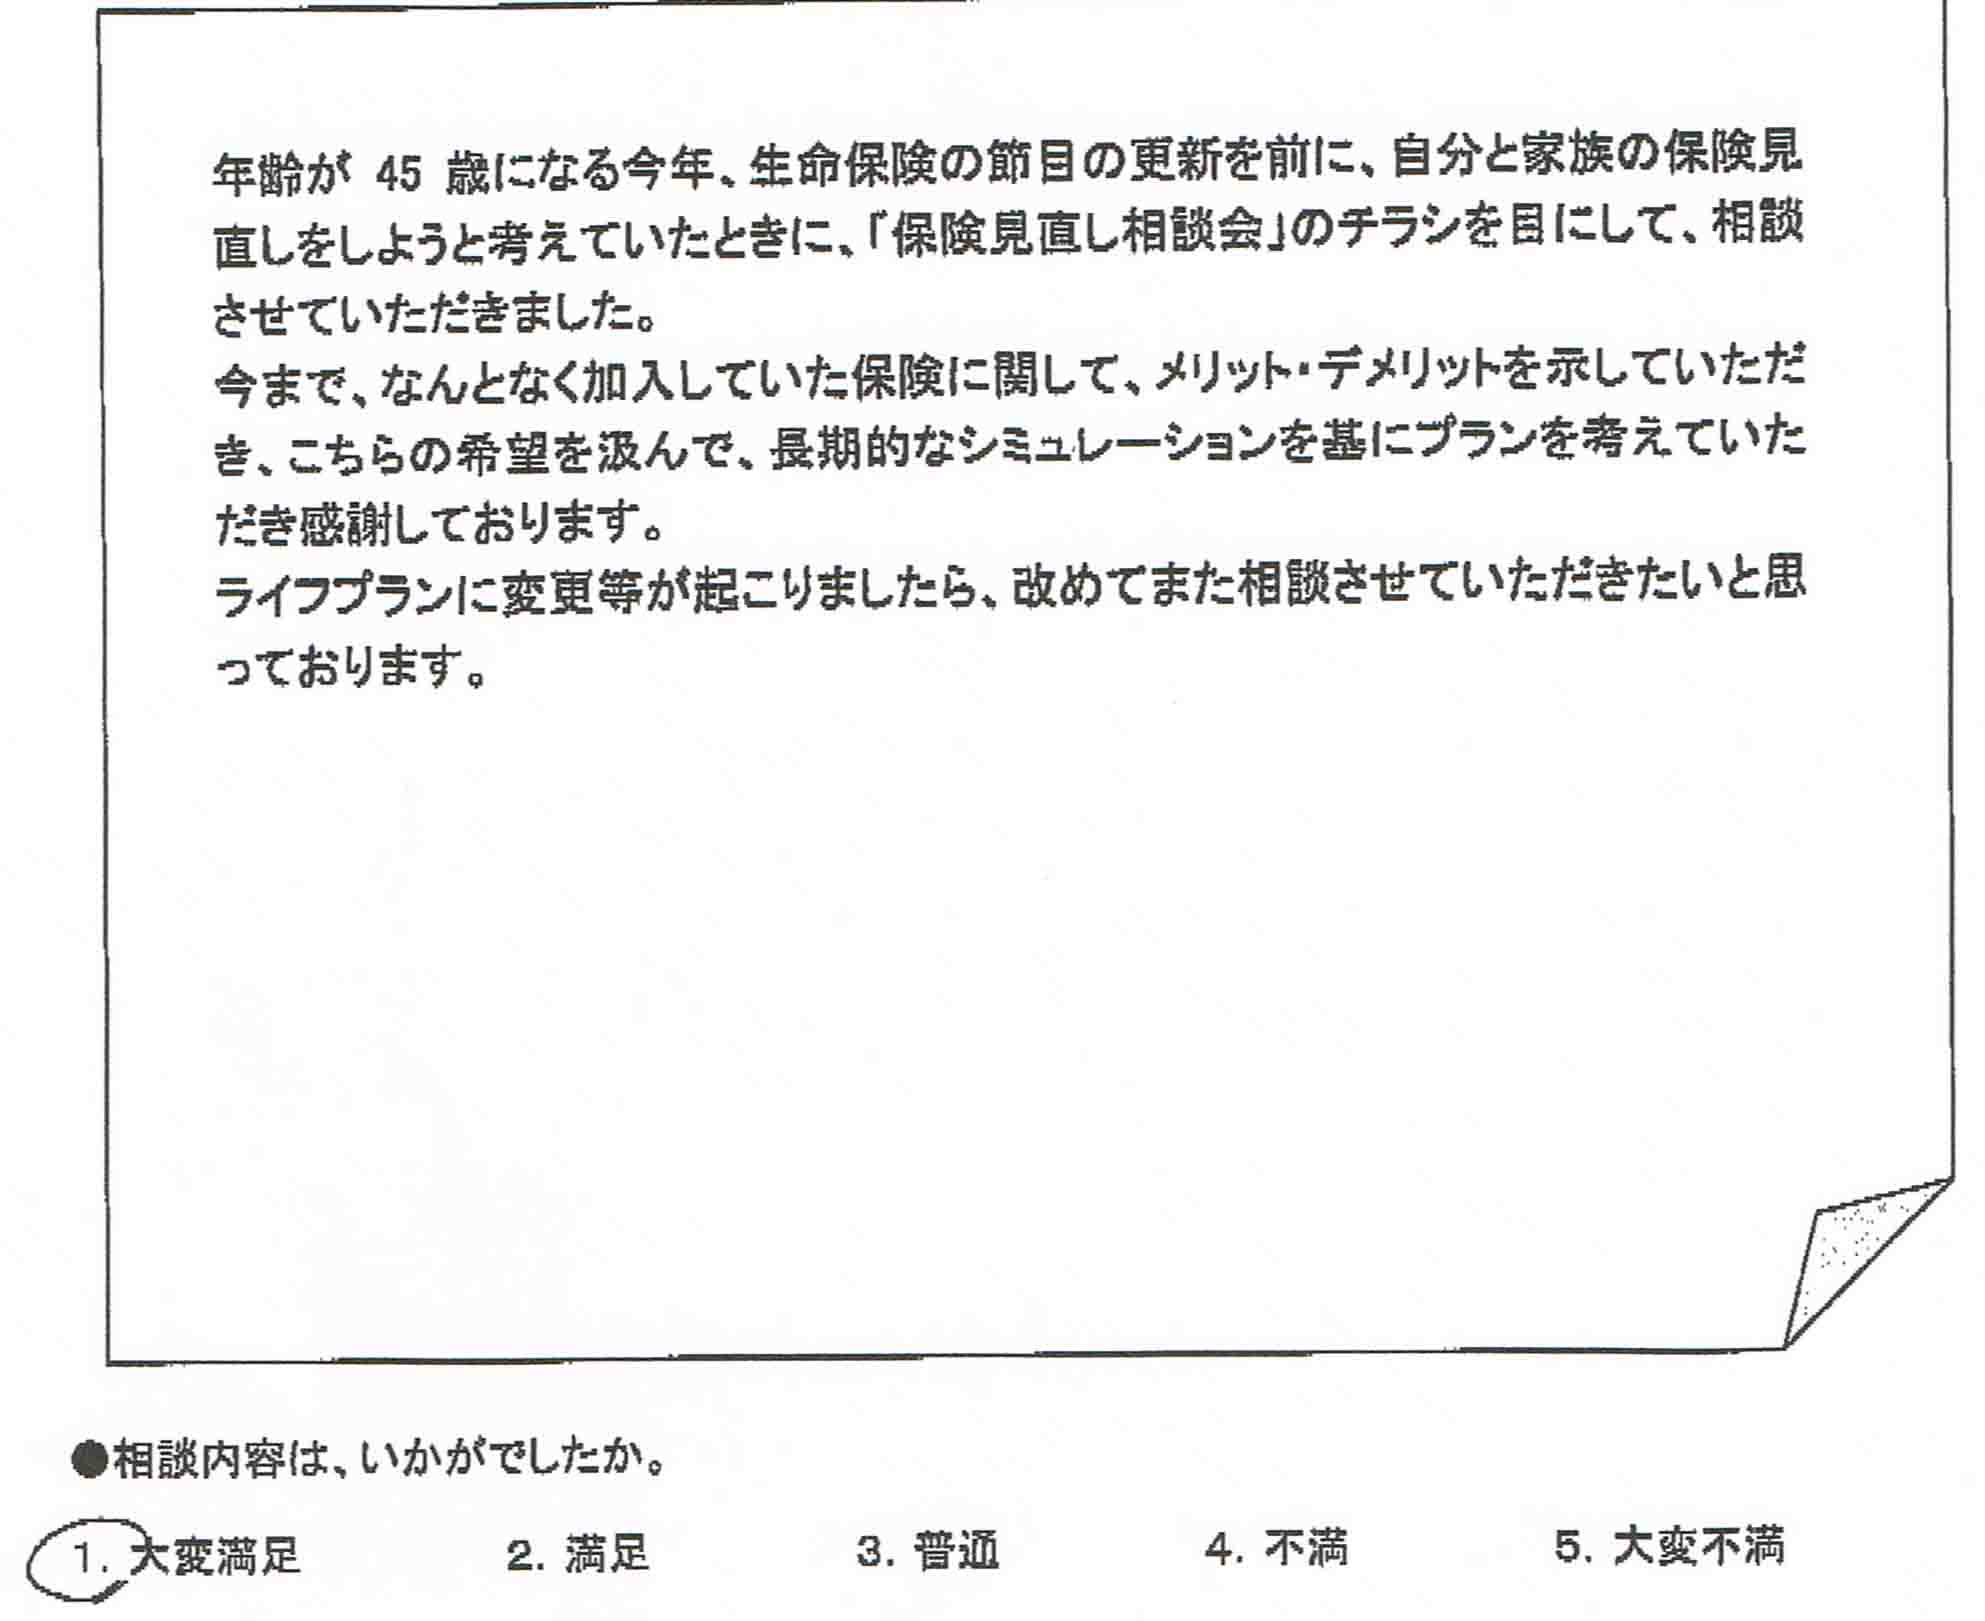 年齢が 45 歳になる今年、生命保険の節目の更新を前に、自分と家族の保険見
直しをしようと考えていたときに、「保険見直し相談会」のチラシを目にして、相談
させていただきました。
今まで、なんとなく加入していた保険に関して、メリット・デメリットを示していただ
き、こちらの希望を汲んで、長期的なシミュレーションを基にプランを考えていた
だき感謝しております。
ライフプランに変更等が起こりましたら、改めてまた相談させていただきたいと思
っております。
●相談内容は、いかがでしたか。
1. 大変満足 2. 満足 3. 普通 4. 不満 5. 大変不満